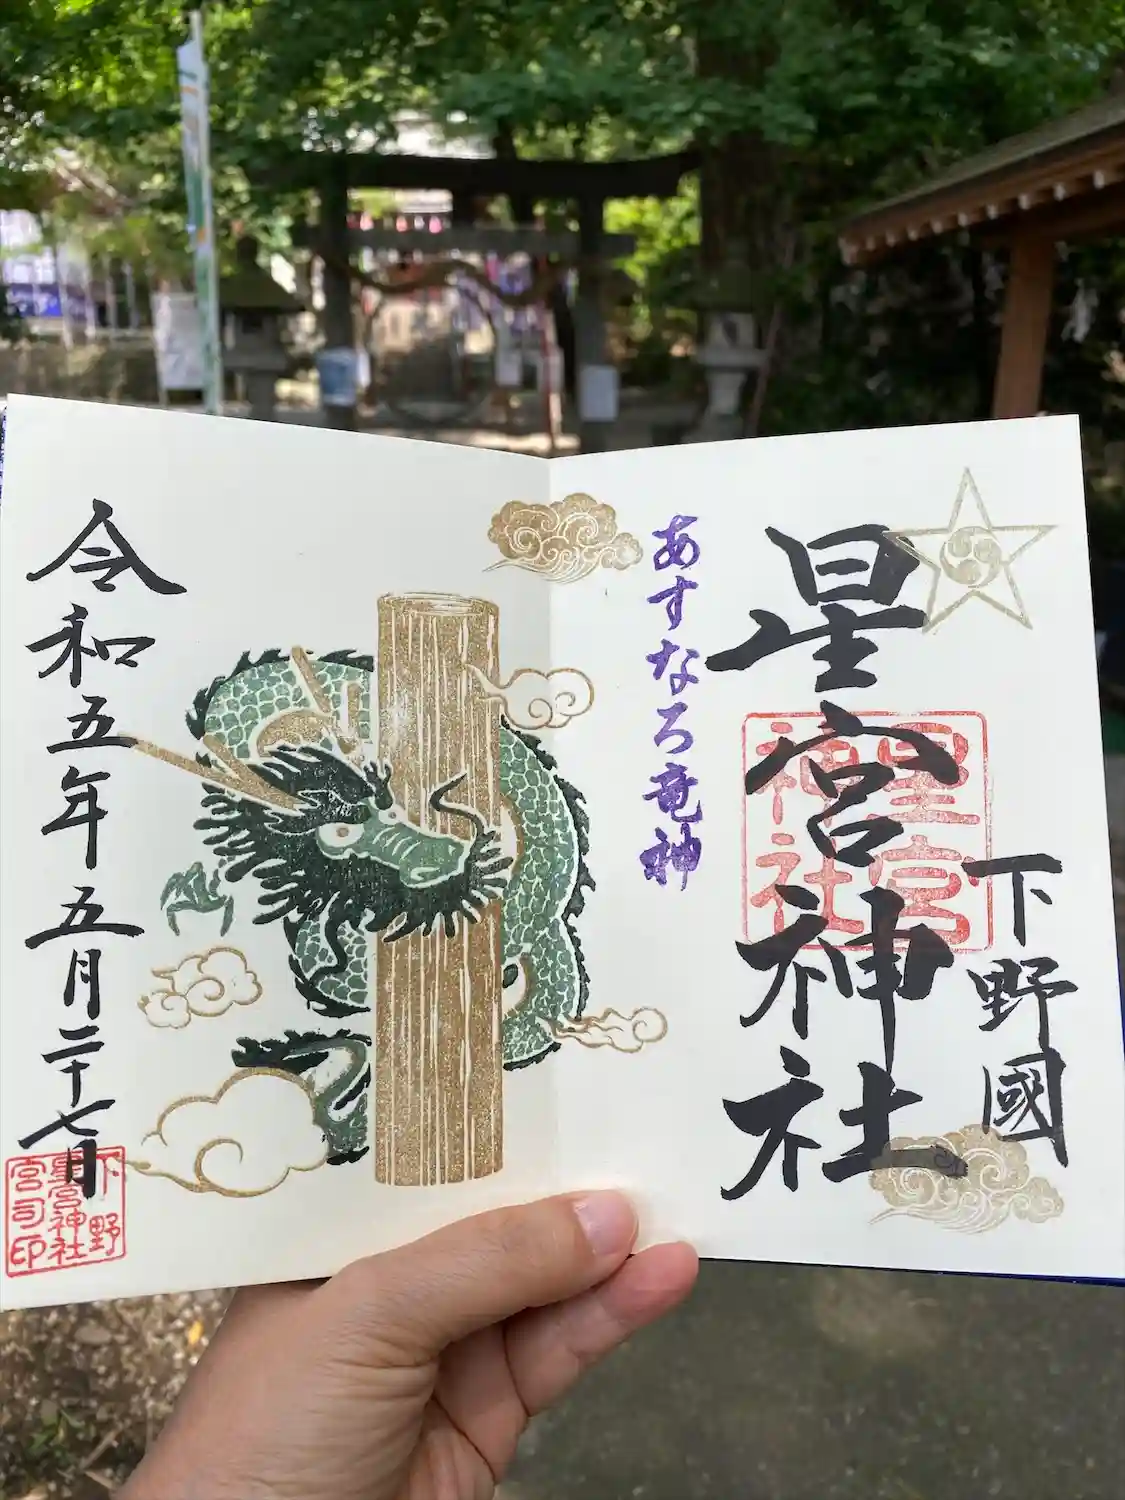 下野國
星宮神社
星宮神社
あすなろ竜神
令和五年五月二十七日
下野
星宮神社
宮司印